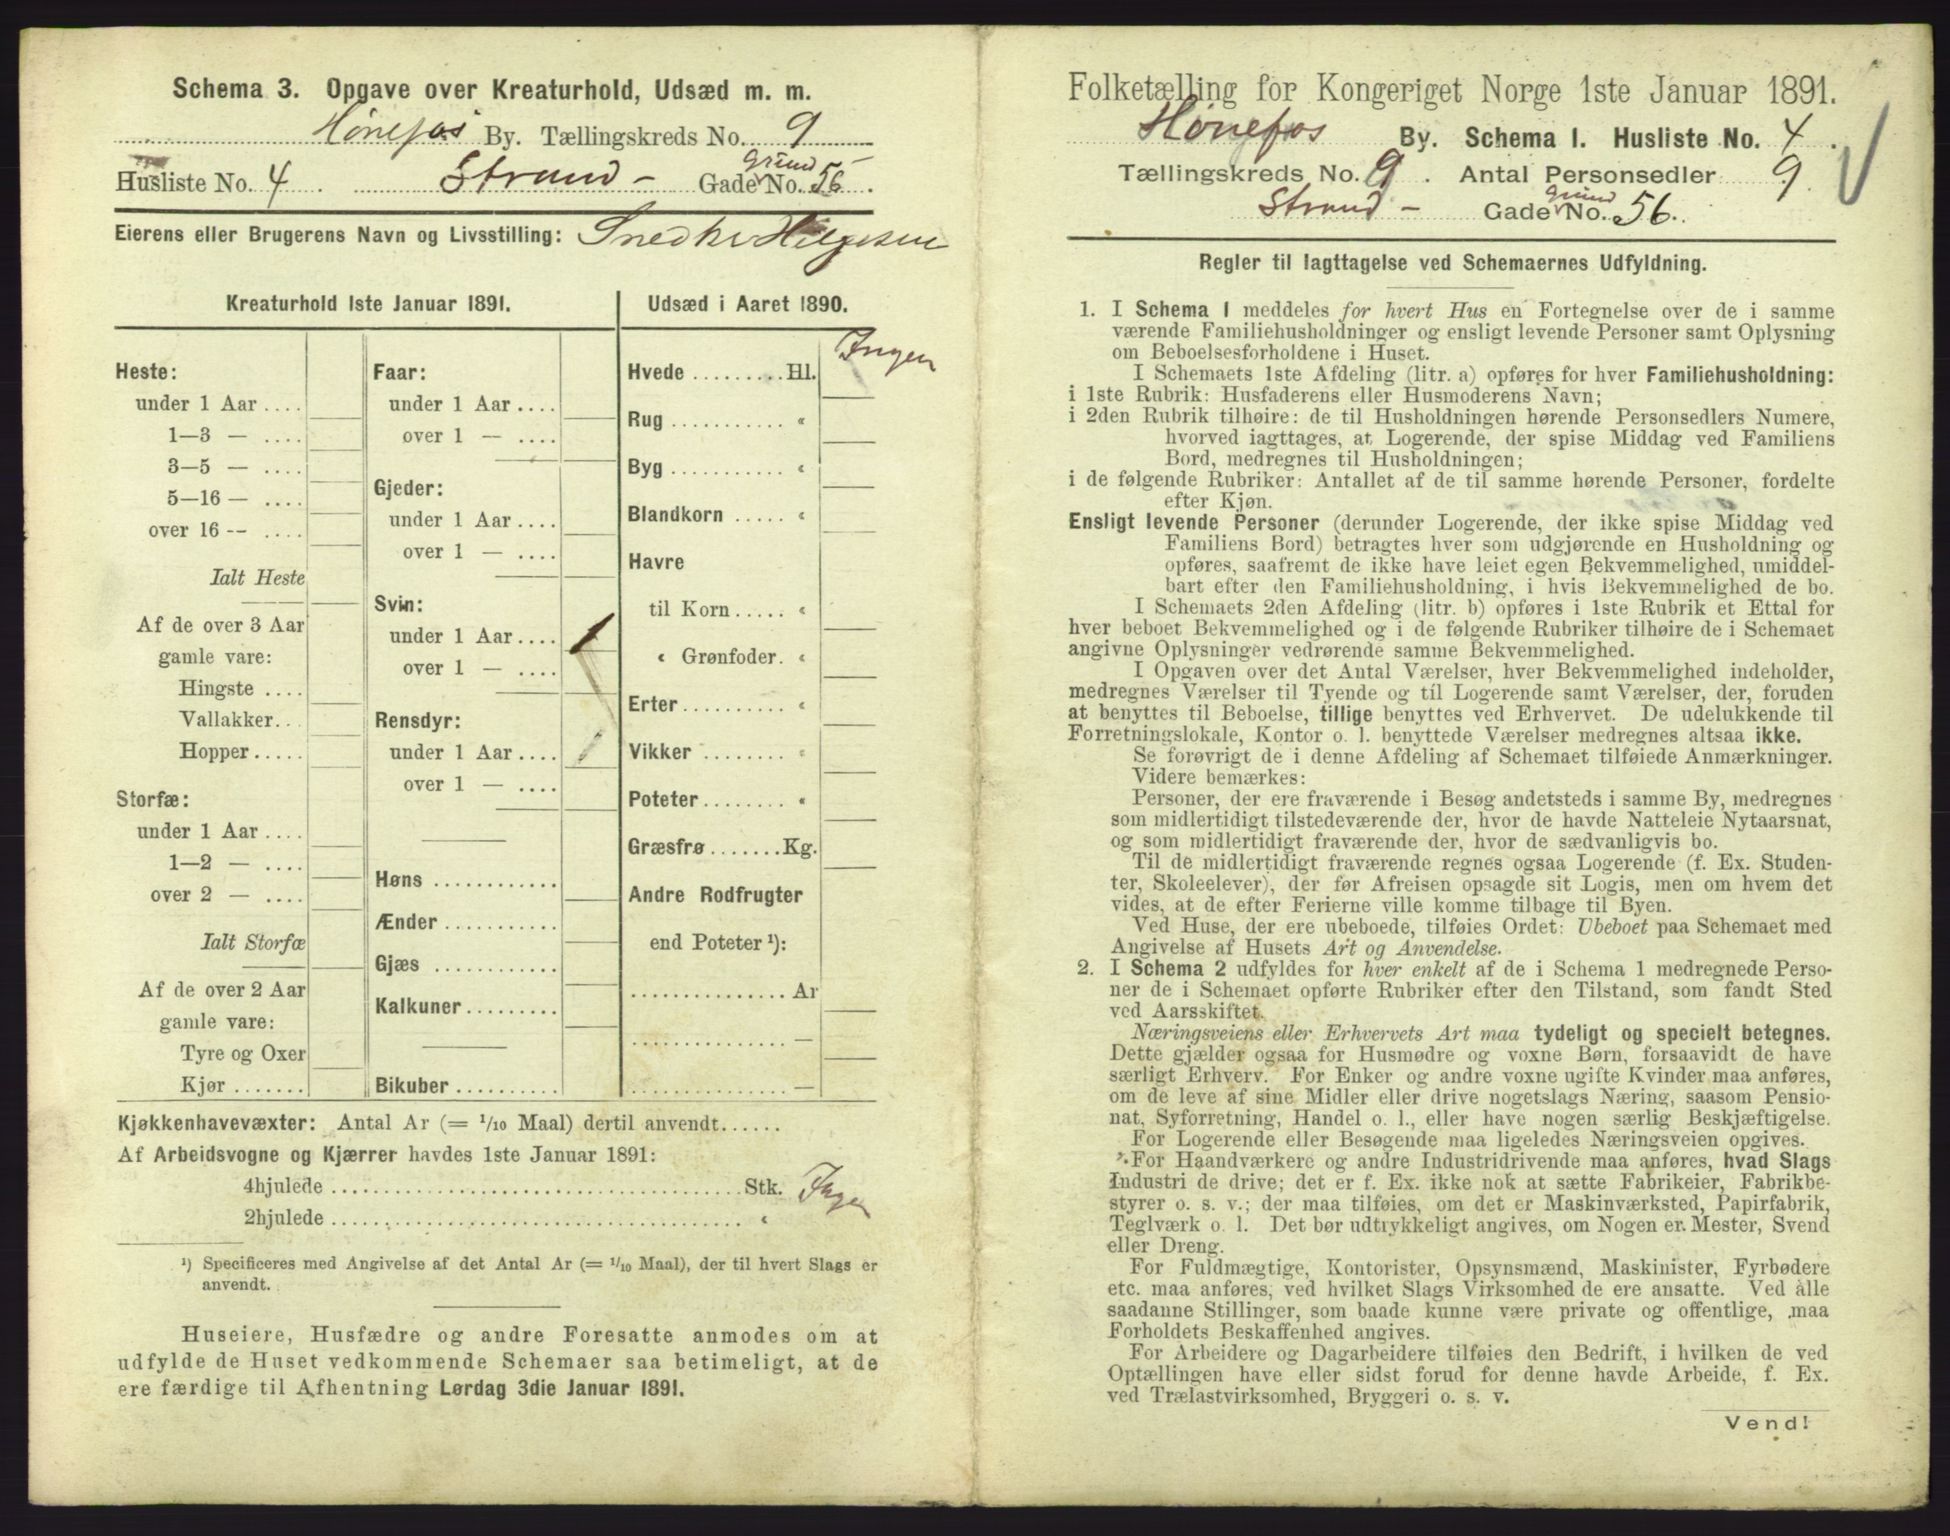 Schema 3. Opgave over Kreaturhold, Udsæd m. m.
Hønefos By. Tællingskreds No. 9
Husliste No. 4 Strand- Gade Grund No. 56
Eierens eller Brugerens Navn og Livsstilling: Snedker Helgesen
Kreaturhold 1ste Januar 1891.
Heste:
under 1 Aar ....
1—3 — ....
3—5 — ....
5—16 — ....
over 16 — ....
Ialt Heste
Af de over 3 Aar
gamle vare:
Hingste ....
Vallakker...
Hopper.....
Storfæ:
under 1 Aar ....
1—2 — ....
over 2 — ....
Ialt Storfæ
Af de over 2 Aar
gamle vare:
Tyre og Oxer
Kjør .......
Faar:
under 1 Aar....
over 1 — ....
Gjeder:
under 1 Aar....
over 1 — ....
Svin:
under 1 Aar.... 1
over 1 — ....
Rensdyr:
under 1 Aar....
over 1 — ....
Høns ............
Ænder ...........
Gjæs ............
Kalkuner.........
Bikuber ..........
Udsæd i Aaret 1890.
Hvede .........Hl. Ingen
Rug ........... "
Byg ........... "
Blandkorn ..... "
Havre
til Korn..... "
" Grønfoder. "
Erter.......... "
Vikker ........ "
Poteter........ "
Græsfrø.......Kg.
Andre Rodfrugter
end Poteter ¹):
............... Ar
............... —
............... —
Kjøkkenhavevæxter: Antal Ar (= 1/10 Maal) dertil anvendt......
Af Arbeidsvogne og Kjærrer havdes 1ste Januar 1891:
4hjulede ........................................Stk. Ingen
2hjulede ........................................ "
¹) Specificeres med Angivelse af det Antal Ar (= 1/10 Maal), der til hvert Slags er
anvendt.
Huseiere, Husfædre og andre Foresatte anmodes om at
udfylde de Huset vedkommende Schemaer saa betimeligt, at de
ere færdige til Afhentning Lørdag 3die Januar 1891.
Folketælling for Kongeriget Norge 1ste Januar 1891.
Hønefos By. Schema 1. Husliste No. 4.
Tællingskreds No. 9. Antal Personsedler 9.
Strand- Gade Grund No. 56.
Regler til Iagttagelse ved Schemaernes Udfyldning.
1. I Schema 1 meddeles for hvert Hus en Fortegnelse over de i samme
værende Familiehusholdninger og ensligt levende Personer samt Oplysning
om Beboelsesforholdene i Huset.
I Schemaets 1ste Afdeling (litr. a) opføres for hver Familiehusholdning:
i 1ste Rubrik: Husfaderens eller Husmoderens Navn;
i 2den Rubrik tilhøire: de til Husholdningen hørende Personsedlers Numere,
hvorved iagttages, at Logerende, der spise Middag ved Familiens
Bord, medregnes til Husholdningen;
i de følgende Rubriker: Antallet af de til samme hørende Personer, fordelte
efter Kjøn.
Ensligt levende Personer (derunder Logerende, der ikke spise Middag ved
Familiens Bord) betragtes hver som udgjørende en Husholdning og
opføres, saafremt de ikke have leiet egen Bekvemmelighed, umiddel-
bart efter den Familiehusholdning, i hvis Bekvemmelighed de bo.
I Schemaets 2den Afdeling (litr. b) opføres i 1ste Rubrik et Ettal for
hver beboet Bekvemmelighed og i de følgende Rubriker tilhøire de i Schemaet
angivne Oplysninger vedrørende samme Bekvemmelighed.
I Opgaven over det Antal Værelser, hver Bekvemmelighed indeholder,
medregnes Værelser til Tyende og til Logerende samt Værelser, der, foruden
at benyttes til Beboelse, tillige benyttes ved Erhvervet. De udelukkende til
Forretningslokale, Kontor o. l. benyttede Værelser medregnes altsaa ikke.
Se forøvrigt de i denne Afdeling af Schemaet tilføiede Anmærkninger.
Videre bemærkes:
Personer, der ere fraværende i Besøg andetsteds i samme By, medregnes
som midlertidigt tilstedeværende der, hvor de havde Natteleie Nytaarsnat,
og som midlertidigt fraværende der, hvor de sædvanligvis bo.
Til de midlertidigt fraværende regnes ogsaa Logerende (f. Ex. Studen-
ter, Skoleelever), der før Afreisen opsagde sit Logis, men om hvem det
vides, at de efter Ferierne ville komme tilbage til Byen.
Ved Huse, der ere ubeboede, tilføies Ordet: Ubeboet paa Schemaet med
Angivelse af Husets Art og Anvendelse.
2. I Schema 2 udfyldes for hver enkelt af de i Schema 1 medregnede Perso-
ner de i Schemaet opførte Rubriker efter den Tilstand, som fandt Sted
ved Aarsskiftet.
Næringsveiens eller Erhvervets Art maa tydeligt og specielt betegnes.
Dette gjælder ogsaa for Husmødre og voxne Børn, forsaavidt de have
særligt Erhverv. For Enker og andre voxne ugifte Kvinder maa anføres,
om de leve af sine Midler eller drive nogetslags Næring, saasom Pensio-
nat, Syforretning, Handel o. l., eller have nogen særlig Beskjæftigelse.
For Logerende eller Besøgende maa ligeledes Næringsveien opgives.
For Haandværkere og andre Industridrivende maa anføres, hvad Slags
Industri de drive; det er f. Ex. ikke nok at sætte Fabrikeier, Fabrikbe-
styrer o. s. v.; der maa tilføies, om det er Maskinværksted, Papirfabrik,
Teglværk o. l. Det bør udtrykkeligt angives, om Nogen er Mester, Svend
eller Dreng.
For Fuldmægtige, Kontorister, Opsynsmænd, Maskinister, Fyrbødere
etc. maa anføres, ved hvilket Slags Virksomhed de ere ansatte. Ved alle
saadanne Stillinger, som baade kunne være private og offentlige, maa
Forholdets Beskaffenhed angives.
For Arbeidere og Dagarbeidere tilføies den Bedrift, i hvilken de ved
Optællingen have eller sidst forud for denne havde Arbeide, f. Ex.
ved Trælastvirksomhed, Bryggeri o. s. v.
Vend!